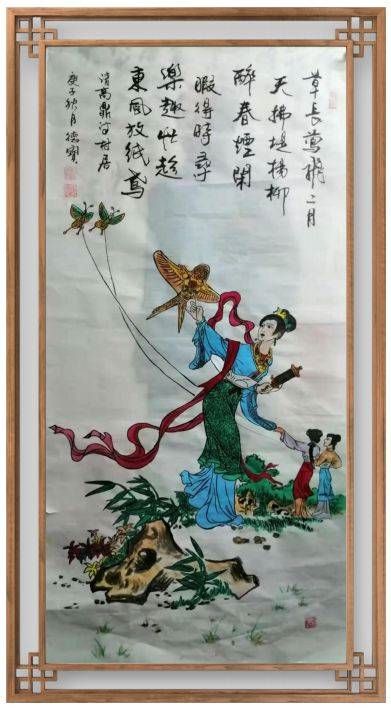 草長鶯飛二月
天拂堤楊柳
醉春煙閑
暇得時尋
樂趣忙趁
東風放紙鳶
清高鼎诗村居
庚子秋月德寶